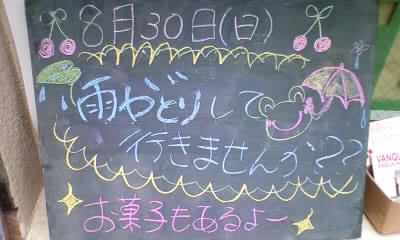 8月30日(日)
雨やどりして
行きませんか??
お菓子もあるよー
VANQU